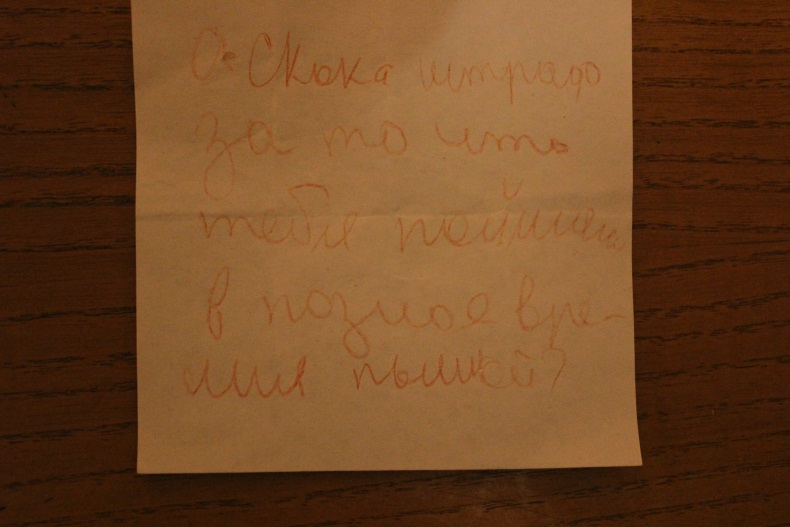 Скока штрафо
за то что
тебя поймали
в позное вре-
мия